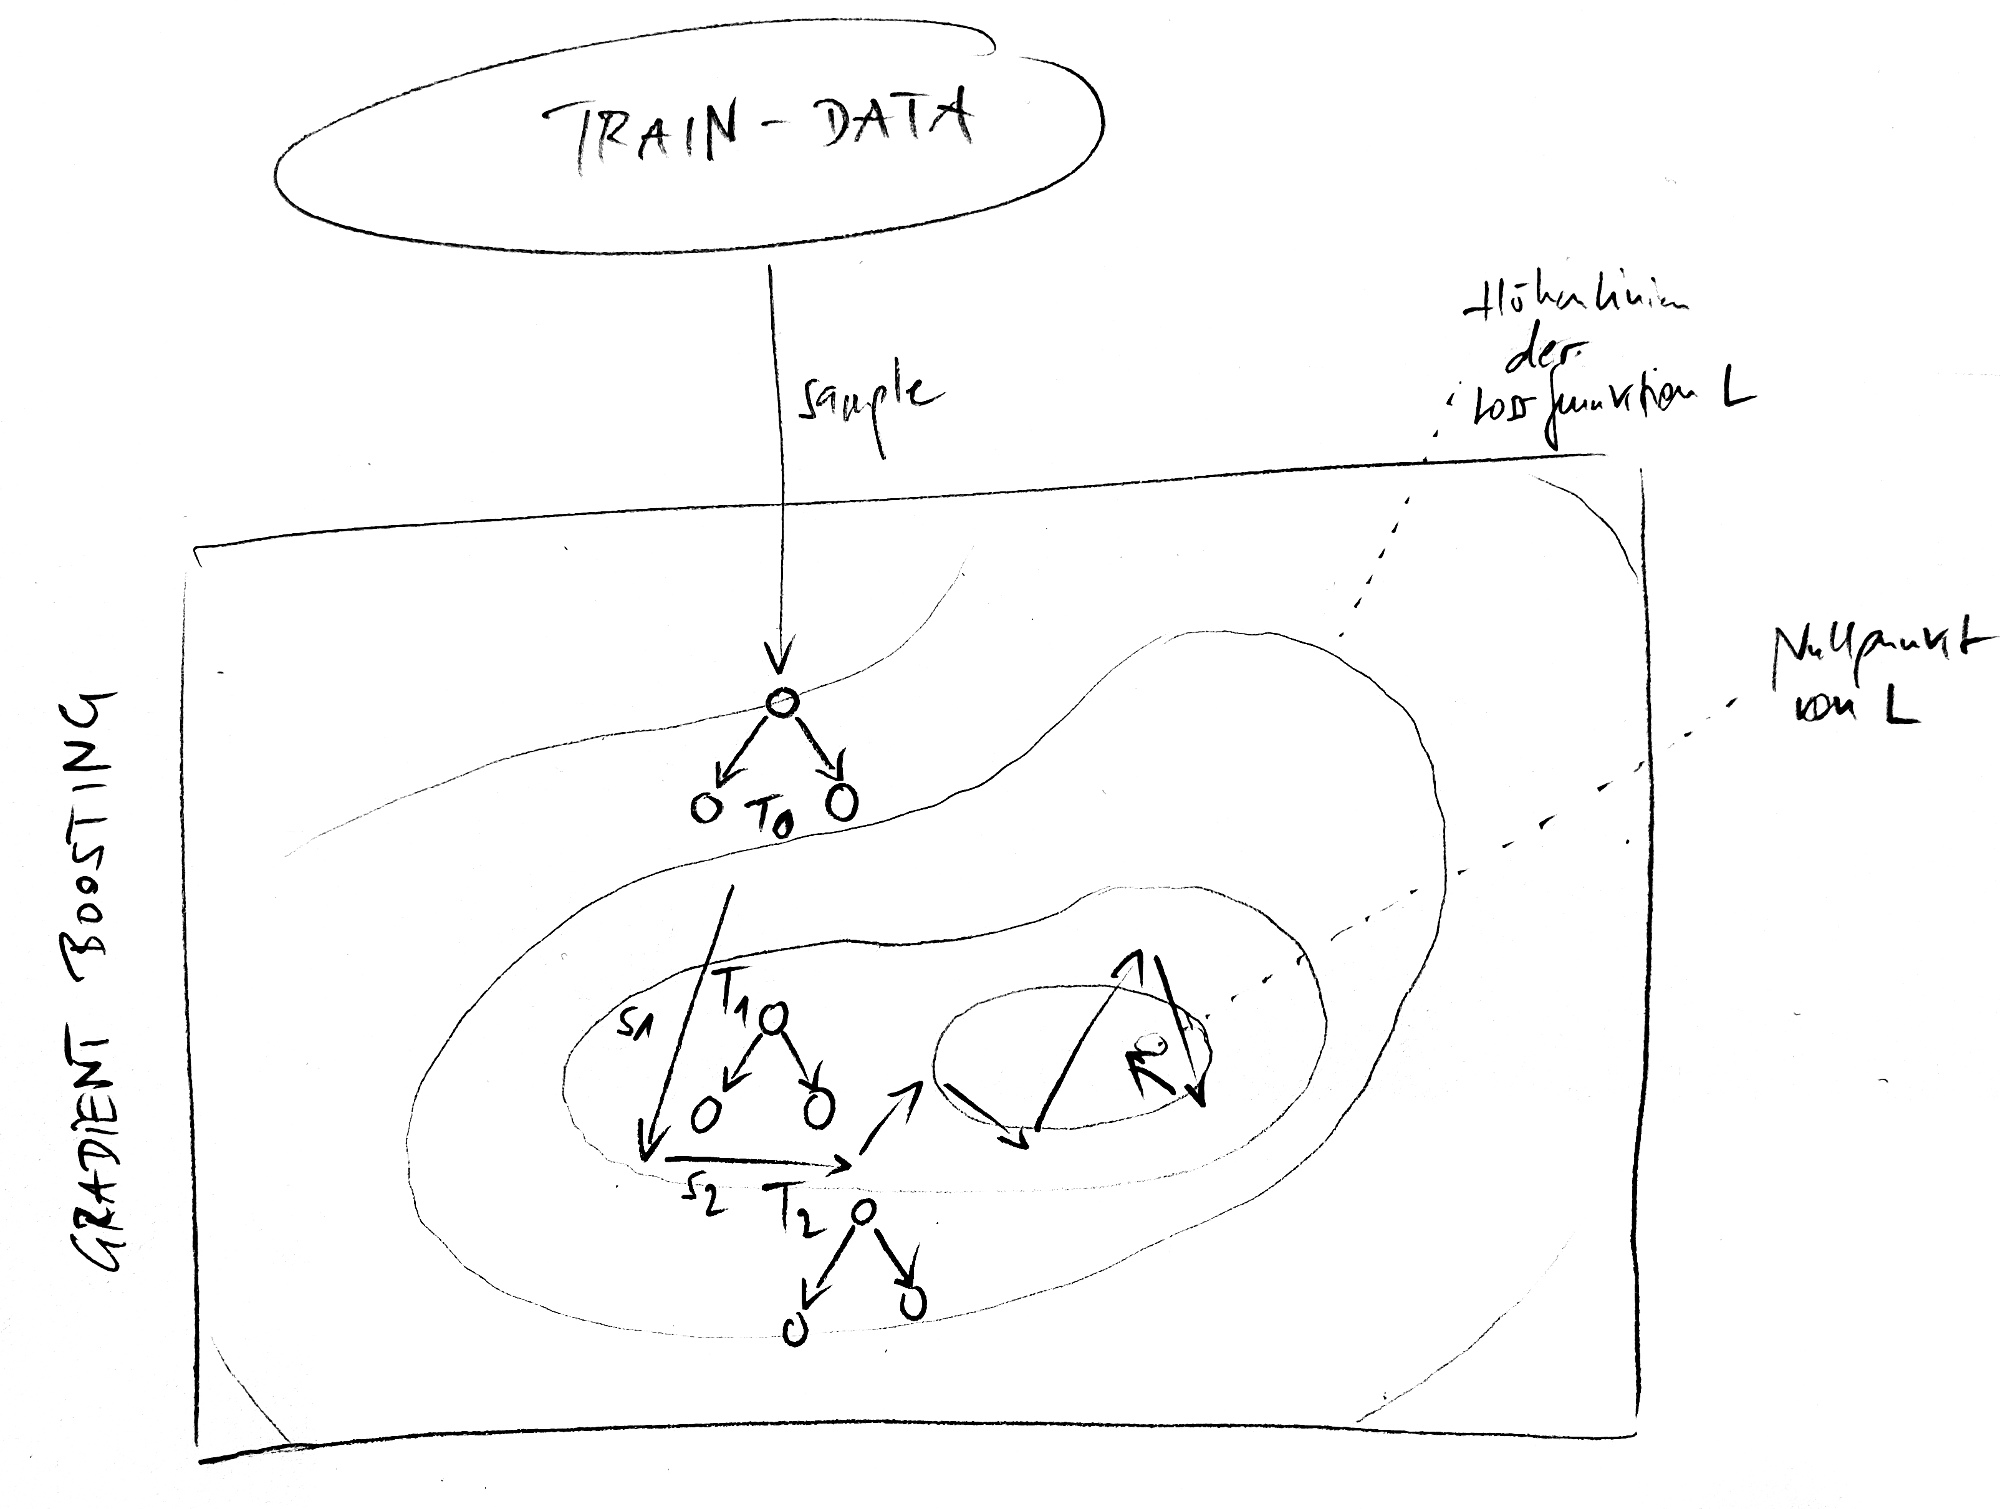 TRAIN-DATA
sample
Höhenlinien
der
Lossfunktion L
Nullpunkt
von L
GRADIENT BOOSTING
T0
T1
S1
S2
T2